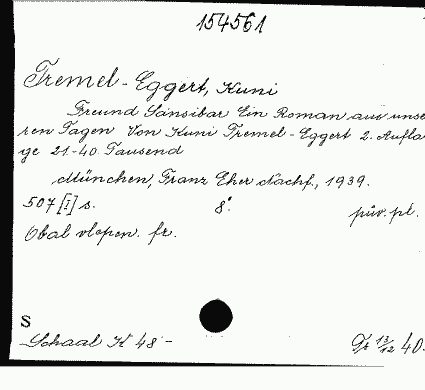 154561
Tremel-Eggert, Kuni
Freund Sansibar Ein Roman aus unse
ren Tagen Von Kuni Tremel-Eggert 2. Aufla
ge 21-40. Tausend
München, Franz Eher Nachf., 1939.
507 [I] s. 8°. pův. pl.
Obal vlepen. fr.
S
Schaal K 48 -
13/12 40.